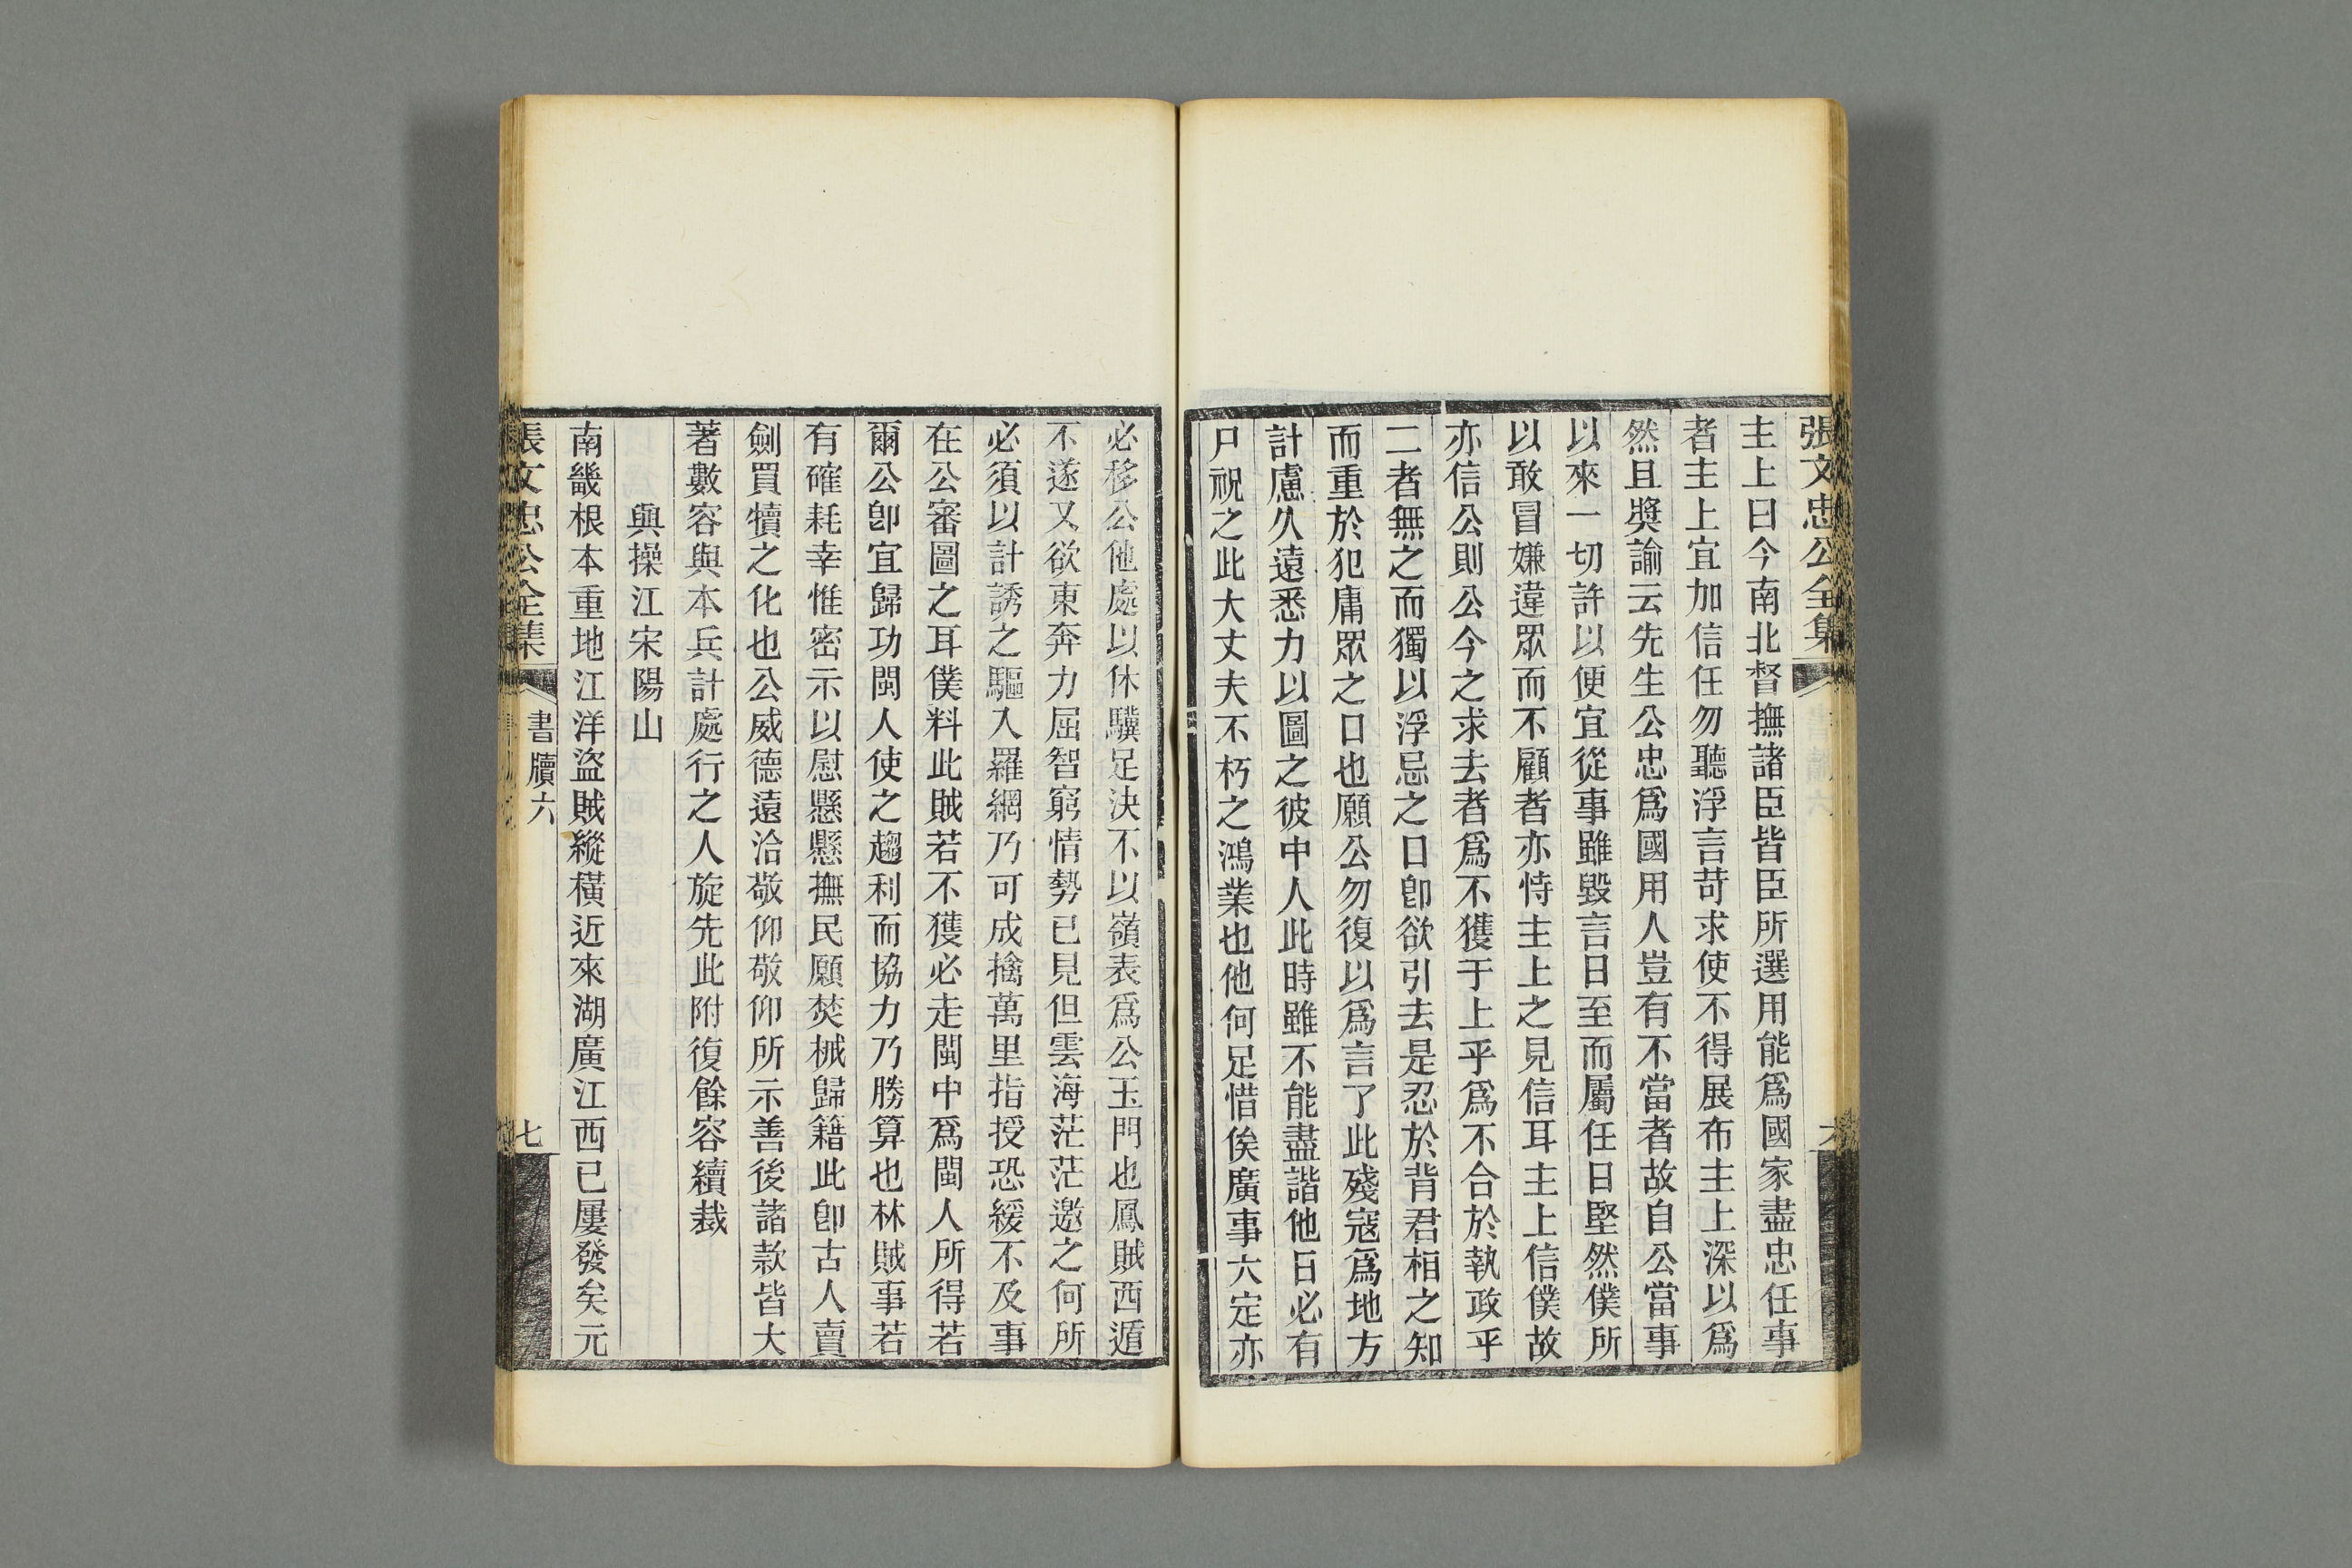 張文忠公全集
六
主上曰今南北督撫諸臣皆臣所選用能爲國家盡忠任事
者主上宜加信任勿聽浮言苛求使不得展布主上深以爲
然且獎諭云先生公忠爲國用人豈有不當者故自公當事
以來一切許以便宜從事雖毀言日至而屬任日堅然僕所
以敢冒嫌違眾而不顧者亦恃主上之見信耳主上信僕故
亦信公則公今之求去者爲不獲于上乎爲不合於執政乎
二者無之而獨以浮忌之口卽欲引去是忍於背君相之知
而重於犯庸眾之口也願公勿復以爲言了此殘寇爲地方
計慮久遠悉力以圖之彼中人此時雖不能盡諧他日必有
尸祝之此大丈夫不朽之鴻業也他何足惜俟廣事大定亦
必移公他處以休驥足決不以嶺表爲公玉門也鳳賊西遁
不遂又欲東奔力屈智窮情勢已見但雲海茫茫邀之何所
必須以計誘之驅入羅網乃可成擒萬里指授恐緩不及事
在公審圖之耳僕料此賊若不獲必走閩中爲閩人所得若
爾公卽宜歸功閩人使之趨利而協力乃勝算也林賊事若
有確耗幸惟密示以慰懸懸撫民願焚械歸籍此卽古人賣
劍買犢之化也公威德遠洽敬仰敬仰所示善後諸款皆大
著數容與本兵計處行之人旋先此附復餘容續裁
與操江宋陽山
南畿根本重地江洋盜賊縱橫近來湖廣江西已屢發矣元
張文忠公全集
書牘六
七